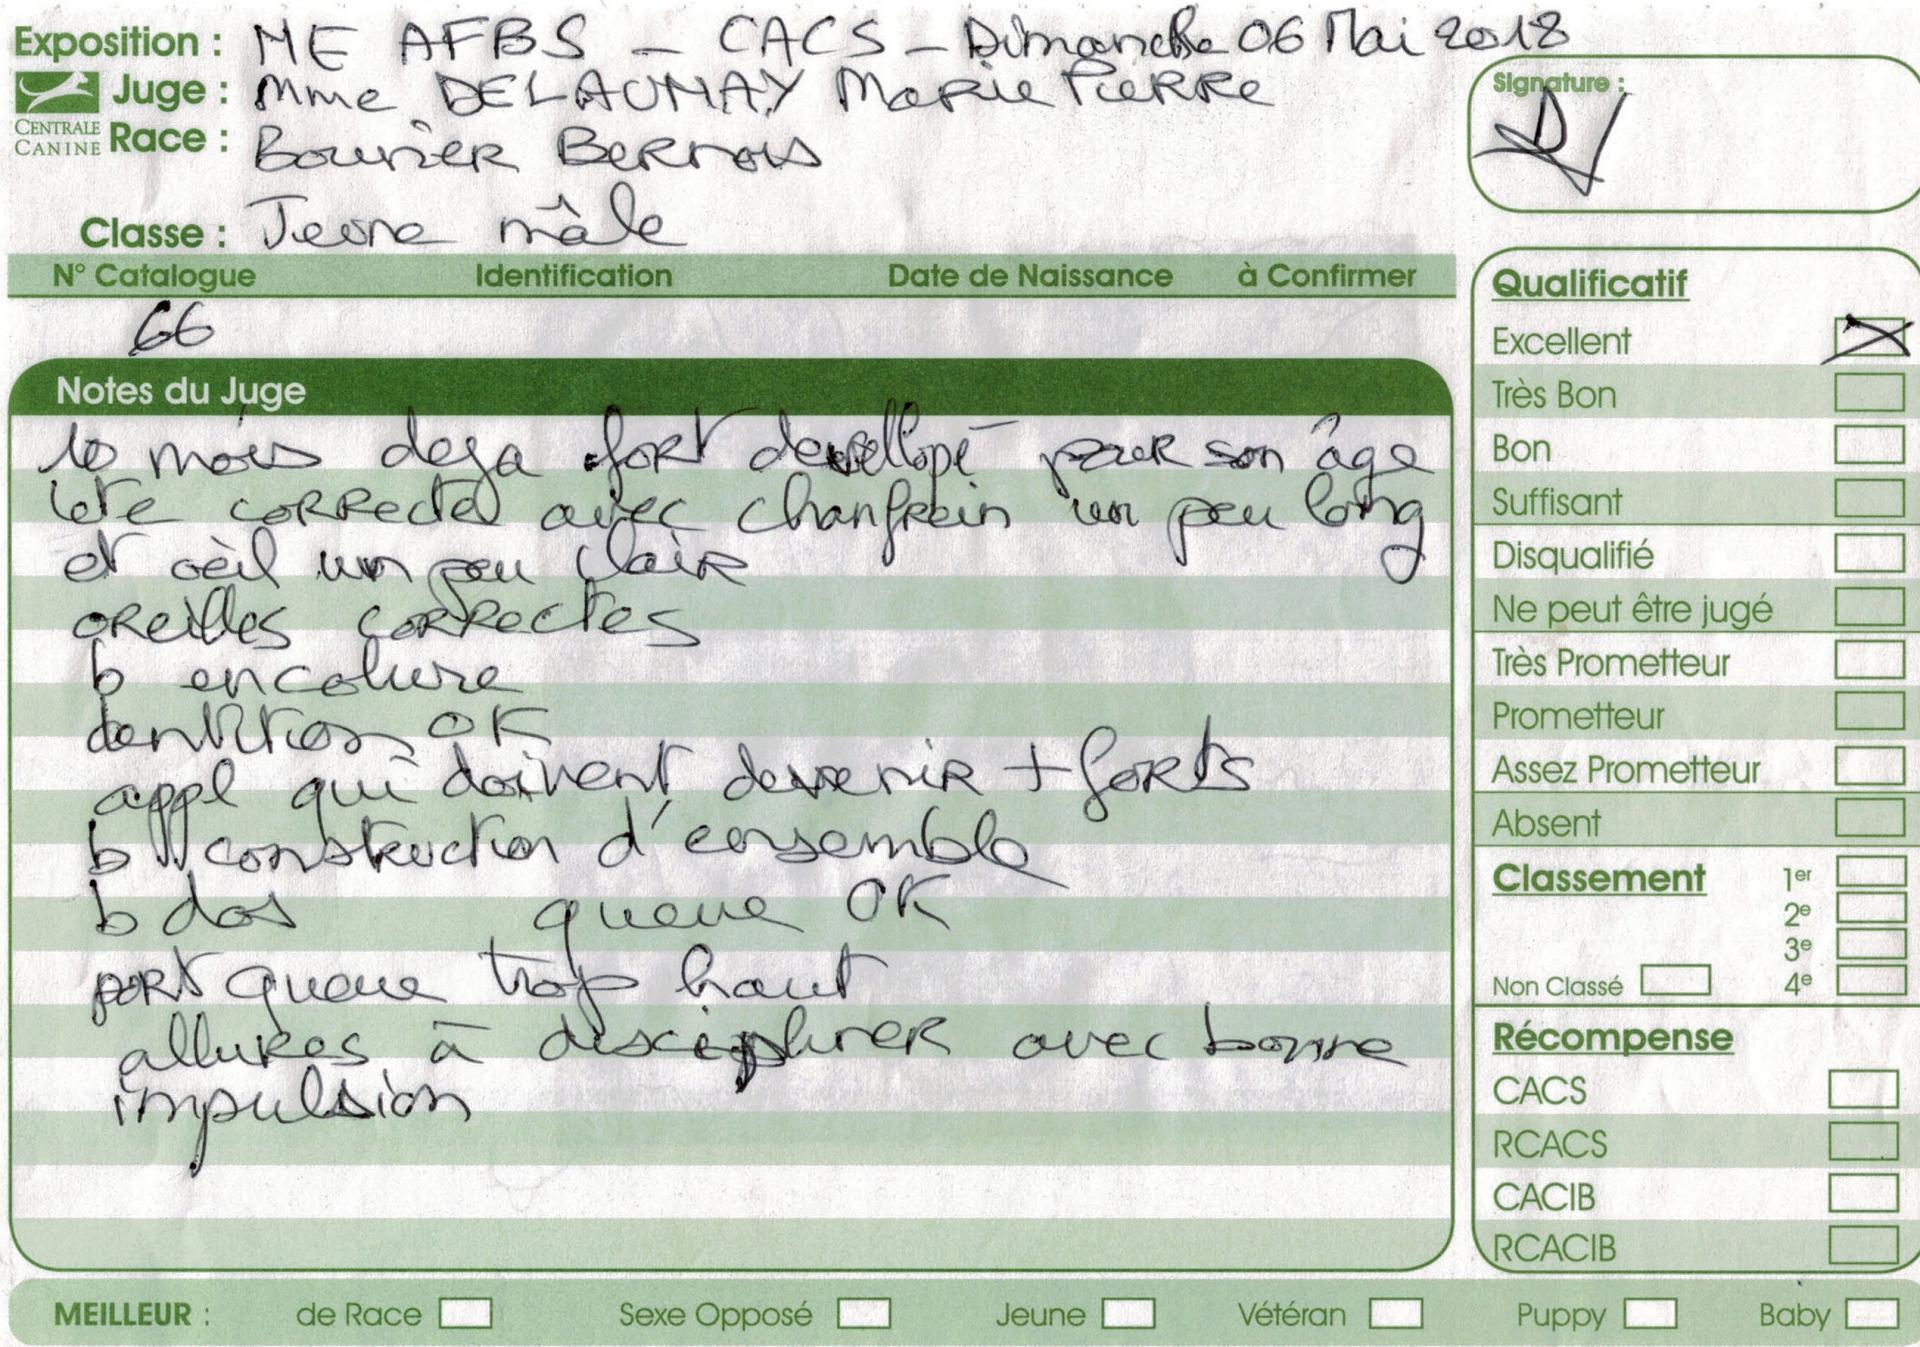 Exposition : NE AFBS - CACS - Dimanche 06 Mai 2018
Juge : Mme DELAUNAY Marie Pierre
CENTRALE CANINE
Race : Bouvier Bernois
Classe : Jeune mâle
Signature :
N° Catalogue Identification Date de Naissance à Confirmer
66
Notes du Juge
10 mois deja fort devellopé pour son âge
tête correcte avec chanfrein un peu long
et oeil un peu clair
oreilles correctes
b encolure
dentition OK
appl qui doivent devenir + forts
b construction d'ensemble
b dos queue OK
port queue trop haut
allures à discipliner avec bonne
impulsion
Qualificatif
Excellent
Très Bon
Bon
Suffisant
Disqualifié
Ne peut être jugé
Très Prometteur
Prometteur
Assez Prometteur
Absent
Classement 1er
2e
3e
Non Classé 4e
Récompense
CACS
RCACS
CACIB
RCACIB
MEILLEUR : de Race Sexe Opposé Jeune Vétéran Puppy Baby